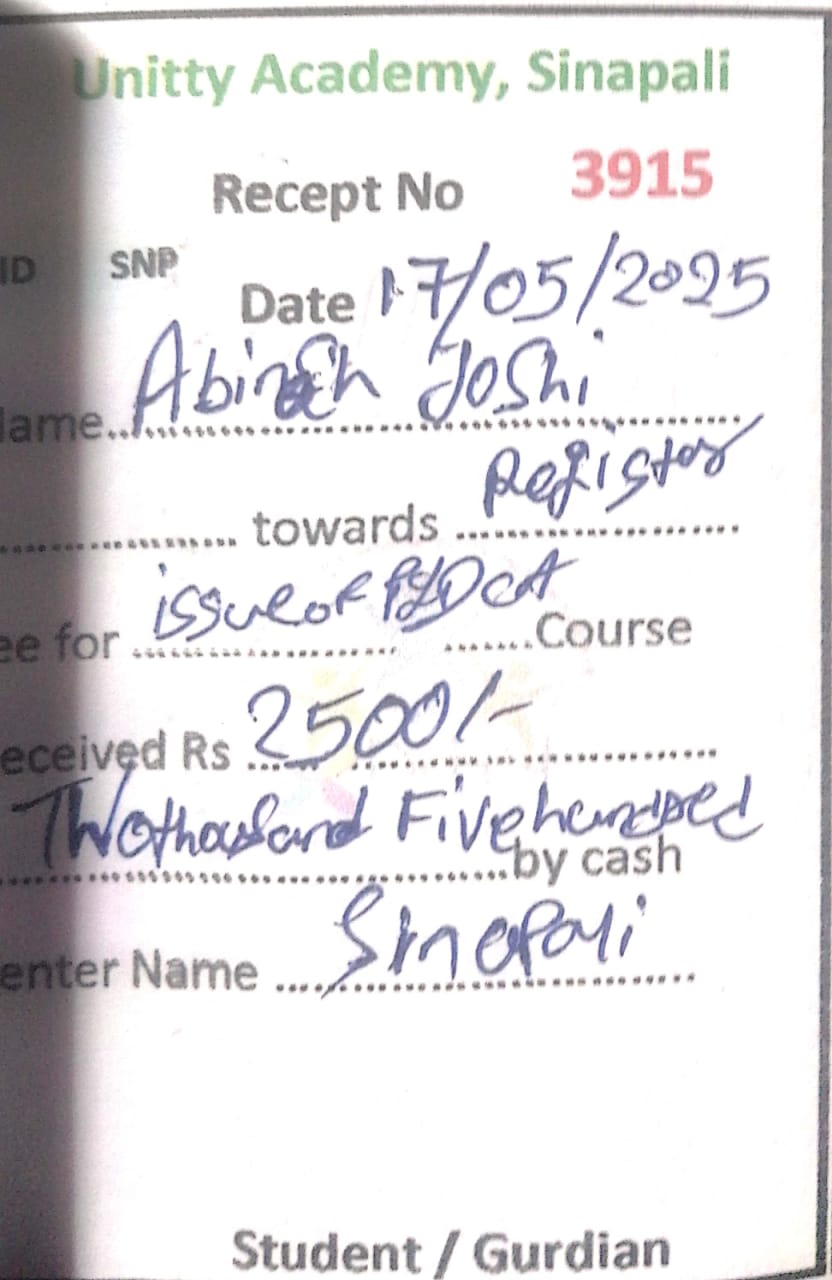 Unitty Academy, Sinapali
Recept No 3915
ID SNP
Date 17/05/2025
ame.. Abinash Joshi
towards Register
ee for issue of PGDCA Course
eceived Rs 2500/-
Two thousand Five hundred
by cash
enter Name Sinapali
Student / Gurdian